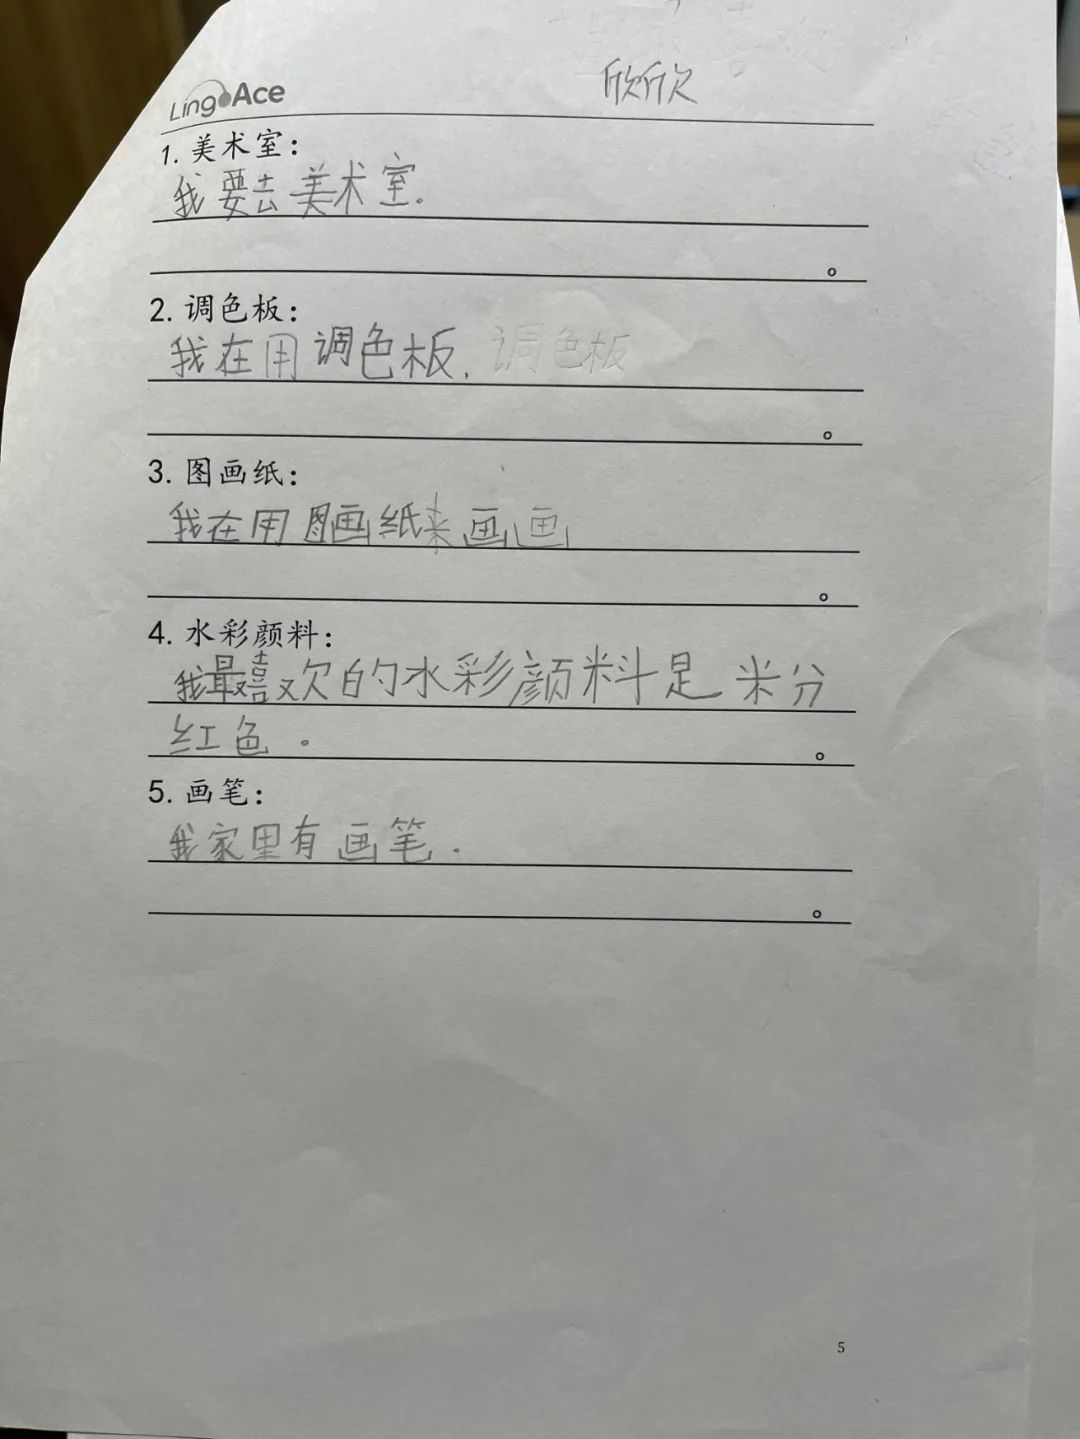 LingoAce
欣欣
1. 美术室：
我要去美术室.
。
2. 调色板：
我在用调色板. 调色板
。
3. 图画纸：
我在用图画纸来画画
。
4. 水彩颜料：
我最喜欢的水彩颜料是粉
红色.
。
5. 画笔：
我家里有画笔.
。
5